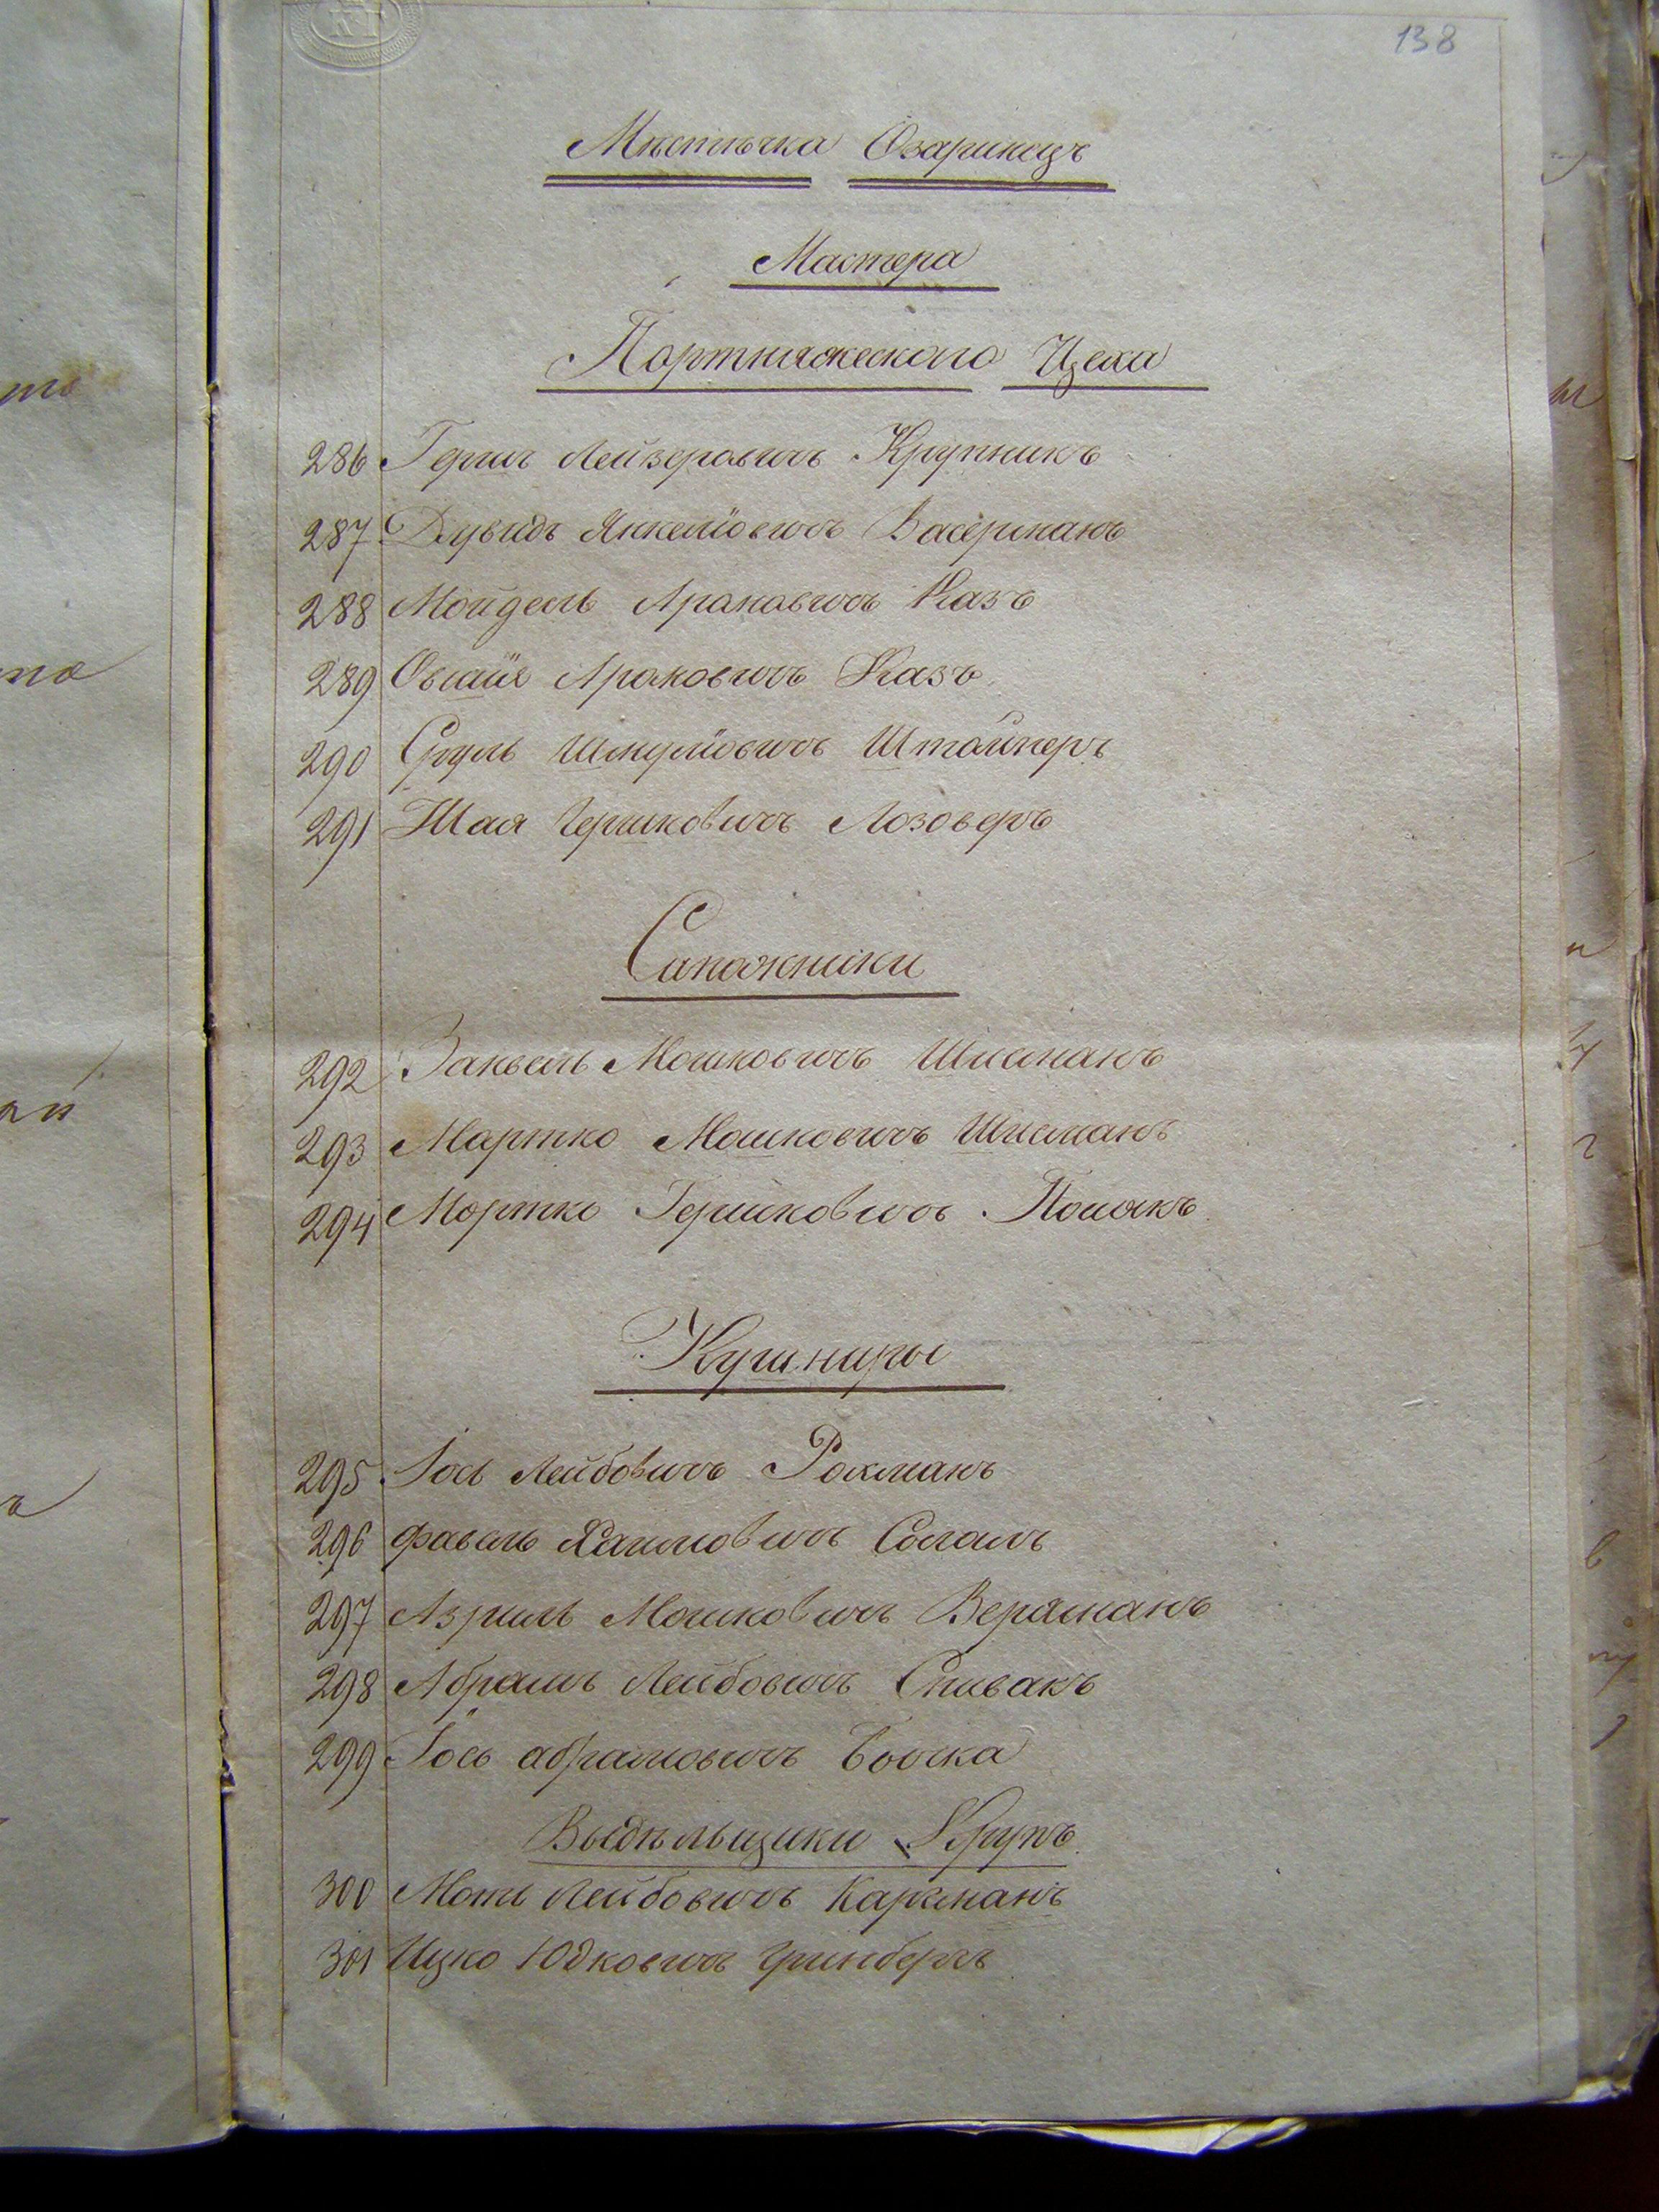 138
Мѣстѣчка Озаринецъ
Мастера
Портняжескаго Цеха
286 Герш Лейзеровичъ Крупникъ
287 Дувидъ Янкелiовичъ Васерманъ
288 Мойдель Ароновичъ Казъ
289 Овшiя Ароновичъ Казъ
290 Сруль Шмулiовичъ Штайнеръ
291 Шая Гершковичъ Лозоверъ
Сапожники
292 Занвель Мошковичъ Шлеманъ
293 Мортко Мошковичъ Шлеманъ
294 Мортко Гершковичъ Полякъ
Кушниры
295 Iось Лейбовичъ Рохманъ
296 Фавель Хаимовичъ Соломъ
297 Азриль Мошковичъ Верхманъ
298 Абрамъ Лейбовичъ Спивакъ
299 Iось абрамовичъ Бочка
Выдѣльщики Крупъ
300 Моть Лейбовичъ Каркманъ
301 Ицко Юдковичъ Гринбергъ